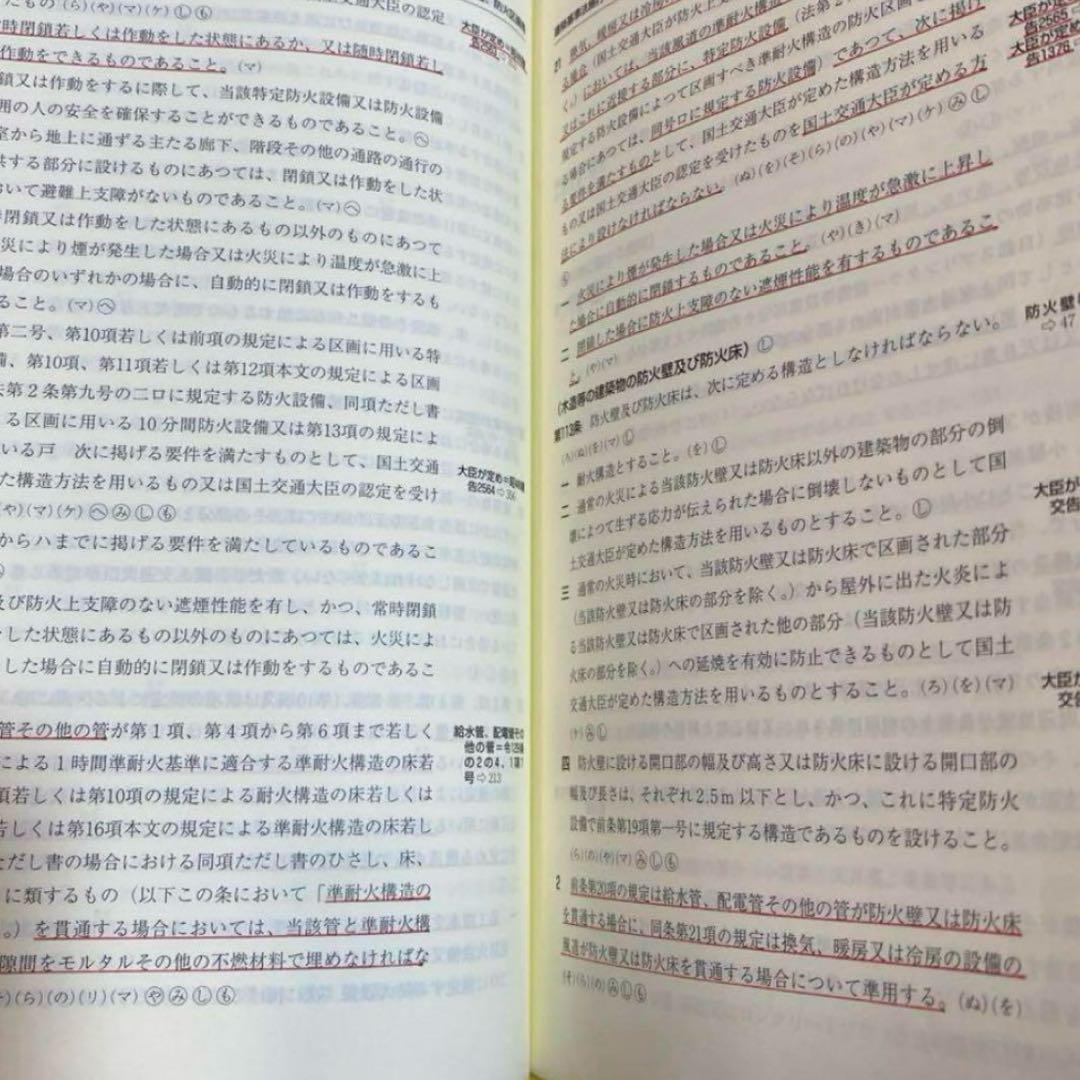 時閉鎖若しくは作動をした状態にあるか、又は随時閉鎖若し
作動をできるものであること。(マ)
鎖又は作動をするに際して、当該特定防火設備又は防火設備
用の人の安全を確保することができるものであること。㋬
室から地上に通ずる主たる廊下、階段その他の通路の通行の
する部分に設けるものにあつては、閉鎖又は作動をした状
おいて避難上支障がないものであること。(マ)㋬
時閉鎖又は作動をした状態にあるもの以外のものにあつて
災により煙が発生した場合又は火災により温度が急激に上
場合のいずれかの場合に、自動的に閉鎖又は作動をするも
ること。(マ)㋬
第二号、第10項若しくは前項の規定による区画に用いる特
備、第10項、第11項若しくは第12項本文の規定による区画
第2条第九号の二ロに規定する防火設備、同項ただし書
る区画に用いる10分間防火設備又は第13項の規定によ
いる戸 次に掲げる要件を満たすものとして、国土交通
た構造方法を用いるもの又は国土交通大臣の認定を受け
(や)(マ)(ケ)㋬㋯㋛㋲
からハまでに掲げる要件を満たしているものであるこ
及び防火上支障のない遮煙性能を有し、かつ、常時閉鎖
をした状態にあるもの以外のものにあつては、火災によ
した場合に自動的に閉鎖又は作動をするものであるこ
管その他の管が第1項、第4項から第6項まで若しく
による1時間準耐火基準に適合する準耐火構造の床若
項若しくは第10項の規定による耐火構造の床若しくは
若しくは第16項本文の規定による準耐火構造の床若し
ただし書の場合における同項ただし書のひさし、床、
に類するもの(以下この条において「準耐火構造の
。)を貫通する場合においては、当該管と準耐火構
隙間をモルタルその他の不燃材料で埋めなければな
(ら)(の)(リ)(マ)㋳㋯㋛㋲
大臣が定め
告2564⇨
給水管、配電管その
他の管＝令129条
の2の4、1項
号⇨213
21 換気、暖房又は冷房の
る場合においては、当該風道の準耐火構造
又はこれに近接する部分に、特定防火設備(法第2
規定する防火設備によつて区画すべき準耐火構造の防火区画に
る場合にあつては、同号ロに規定する防火設備)であつて、次に掲げ
る要件を満たすものとして、国土交通大臣が定めた構造方法を用いる
もの又は国土交通大臣の認定を受けたものを国土交通大臣が定める方
法により設けなければならない。(ぬ)(を)(そ)(ら)(の)(や)(マ)(ケ)㋯㋛
一 火災により煙が発生した場合又は火災により温度が急激に上昇し
た場合に自動的に閉鎖するものであること。(や)(き)(マ)
二 閉鎖した場合に防火上支障のない遮煙性能を有するものであるこ
と。(や)(マ)
(木造等の建築物の防火壁及び防火床)㋛
第113条 防火壁及び防火床は、次に定める構造としなければならない。
(へ)(ぬ)(を)(マ)㋛
一 耐火構造とすること。(を)㋛
二 通常の火災による当該防火壁又は防火床以外の建築物の部分の倒
壊によつて生ずる応力が伝えられた場合に倒壊しないものとして国
土交通大臣が定めた構造方法を用いるものとすること。㋛
三 通常の火災時において、当該防火壁又は防火床で区画された部分
(当該防火壁又は防火床の部分を除く。)から屋外に出た火炎によ
る当該防火壁又は防火床で区画された他の部分(当該防火壁又は防
火床の部分を除く。)への延焼を有効に防止できるものとして国土
交通大臣が定めた構造方法を用いるものとすること。(ろ)(を)(マ)
(ケ)㋯㋛
四 防火壁に設ける開口部の幅及び高さ又は防火床に設ける開口部の
幅及び長さは、それぞれ2.5m以下とし、かつ、これに特定防火
設備で前条第19項第一号に規定する構造であるものを設けること。
(ら)(の)(や)(マ)㋯㋛㋲
2 前条第20項の規定は給水管、配電管その他の管が防火壁又は防火床
を貫通する場合に、同条第21項の規定は換気、暖房又は冷房の設備の
風道が防火壁又は防火床を貫通する場合について準用する。(ぬ)(を)
(そ)(ら)(の)㋯㋛㋲
大臣が定め
告2565
大臣が定め
告1376
防火壁
⇨47
大臣が
交告
大臣が
交告